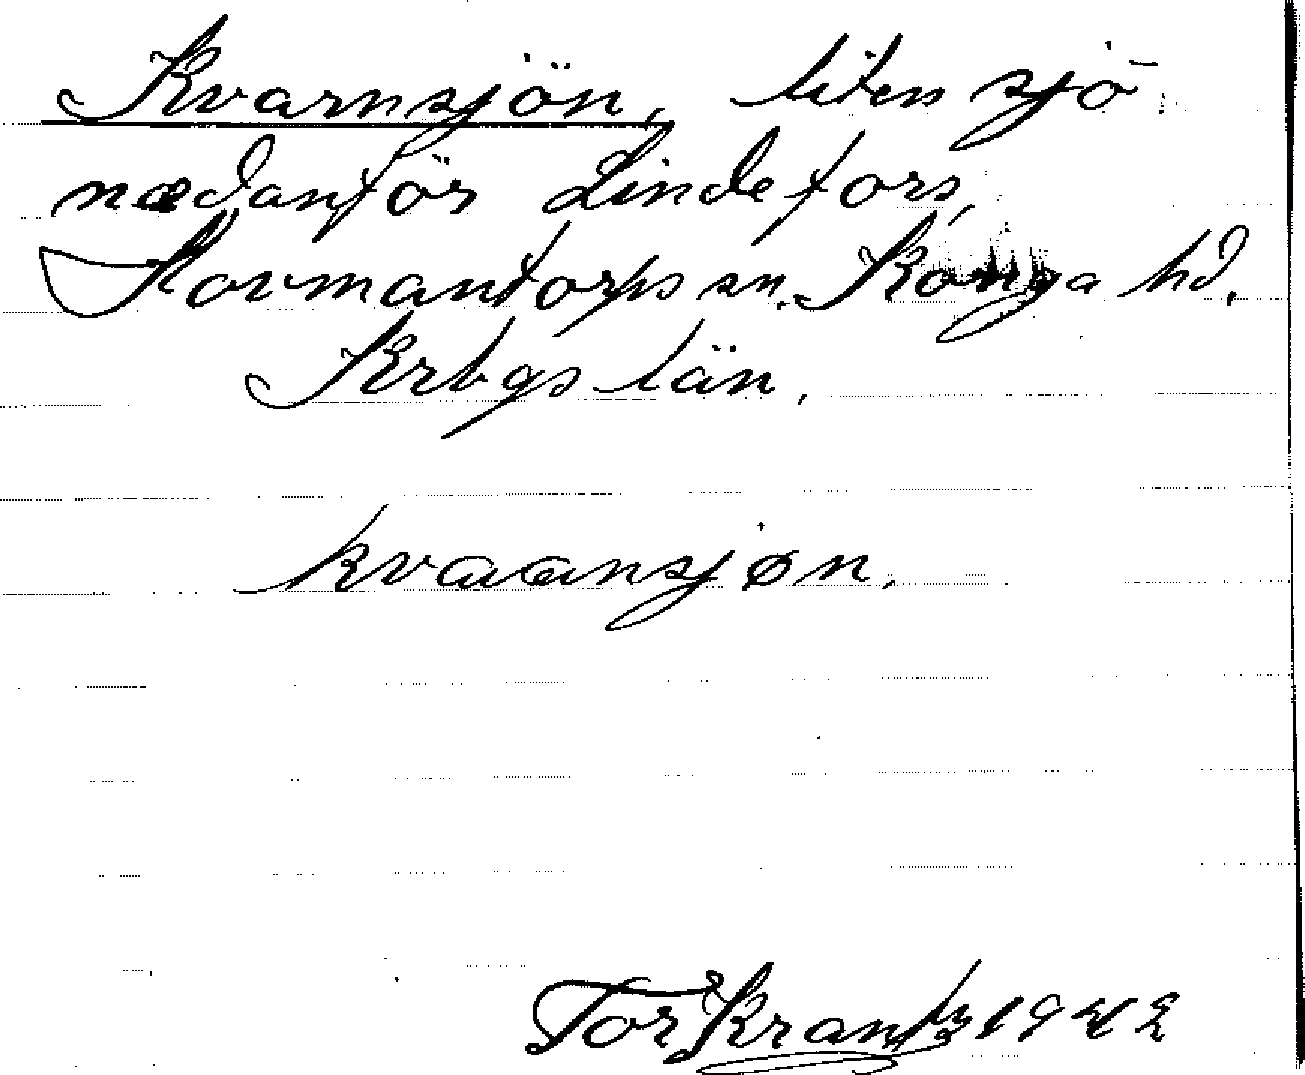 Kvarnsjön, liten sjö
nedanför Lindefors,
Hovmantorps sn. Konga hd.
Krbgs län.
kvaansjøn.
Tor Krantz 1942